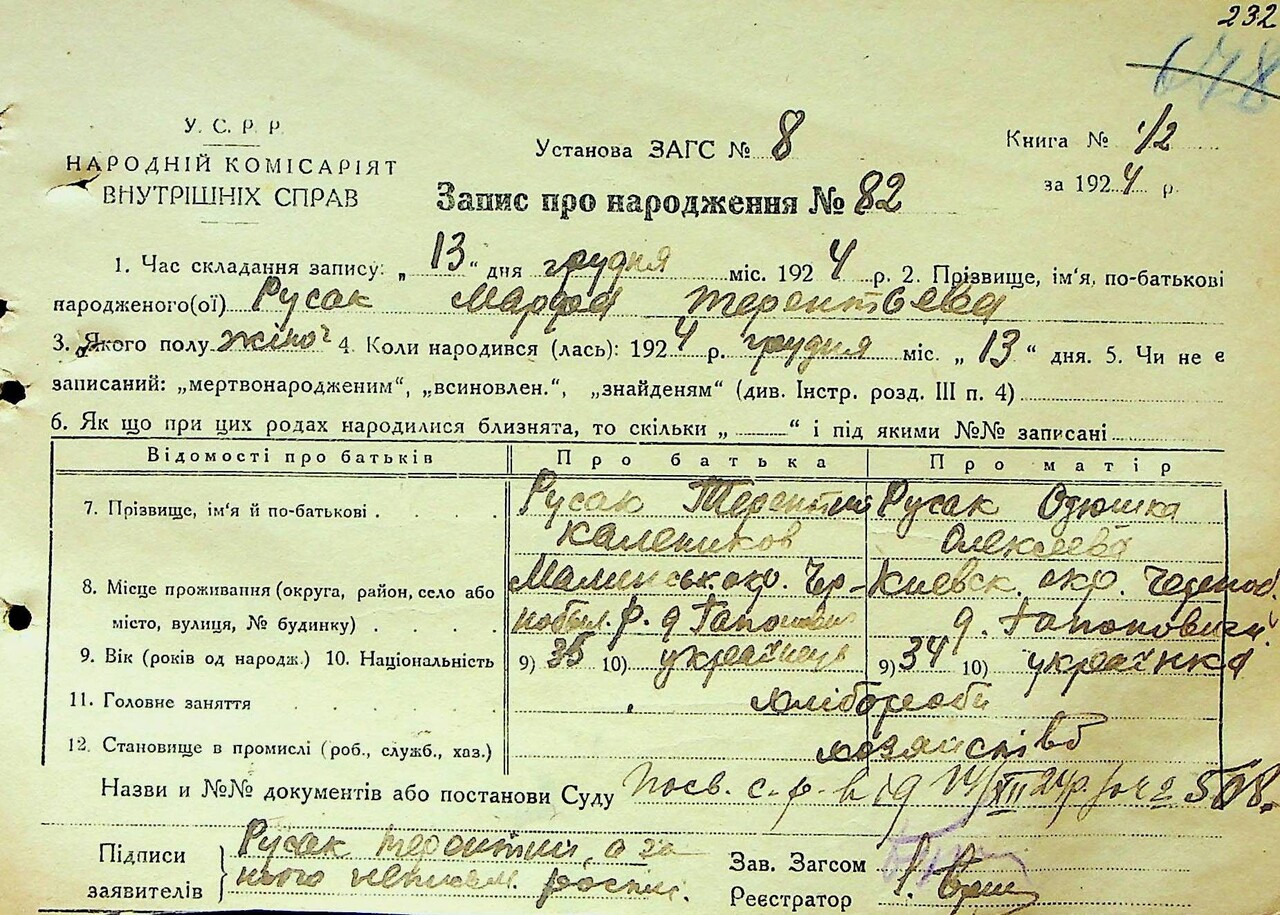 232
678
У. С. Р. Р.
НАРОДНІЙ КОМІСАРІЯТ
ВНУТРІШНІХ СПРАВ
Установа ЗАГС № 8
Книга № 1/2
за 1924 р.
Запис про народження № 82
1. Час складання запису: „ 13 “ дня грудня міс. 1924 р. 2. Прізвище, ім'я, по-батькові
народженого(ої) Русак Марфа Терентьева
3. Якого полу жіноч 4. Коли народився (лась): 1924 р. грудня міс. „ 13 “ дня. 5. Чи не є
записаний: „мертвонародженим“, „всиновлен.“, „знайденям“ (див. Інстр. розд. III п. 4)
6. Як що при цих родах народилися близнята, то скільки „ “ і під якими №№ записані
Відомості про батьків Про батька Про матір
7. Прізвище, ім'я й по-батькові Русак Терентий Русак Одюшка
Калеников Олексіева
8. Місце проживання (округа, район, село або Малинськ окр. Чор- Киевск. окр. Чорноб.
місто, вулиця, № будинку) нобил. р. д Гапонович д. Гапоновичи
9. Вік (років од народж.) 10. Національність 9) 35 10) українець 9) 34 10) українка
11. Головне заняття хлібороби
12. Становище в промислі (роб., служб., хаз.)
Назви и №№ документів або постанови Суду Посв. с. р. від 14/XII 24р. за № 508.
Підписи заявителів Русак Терентий, а за
нього неписьм. роспис.
Зав. Загсом
Реєстратор